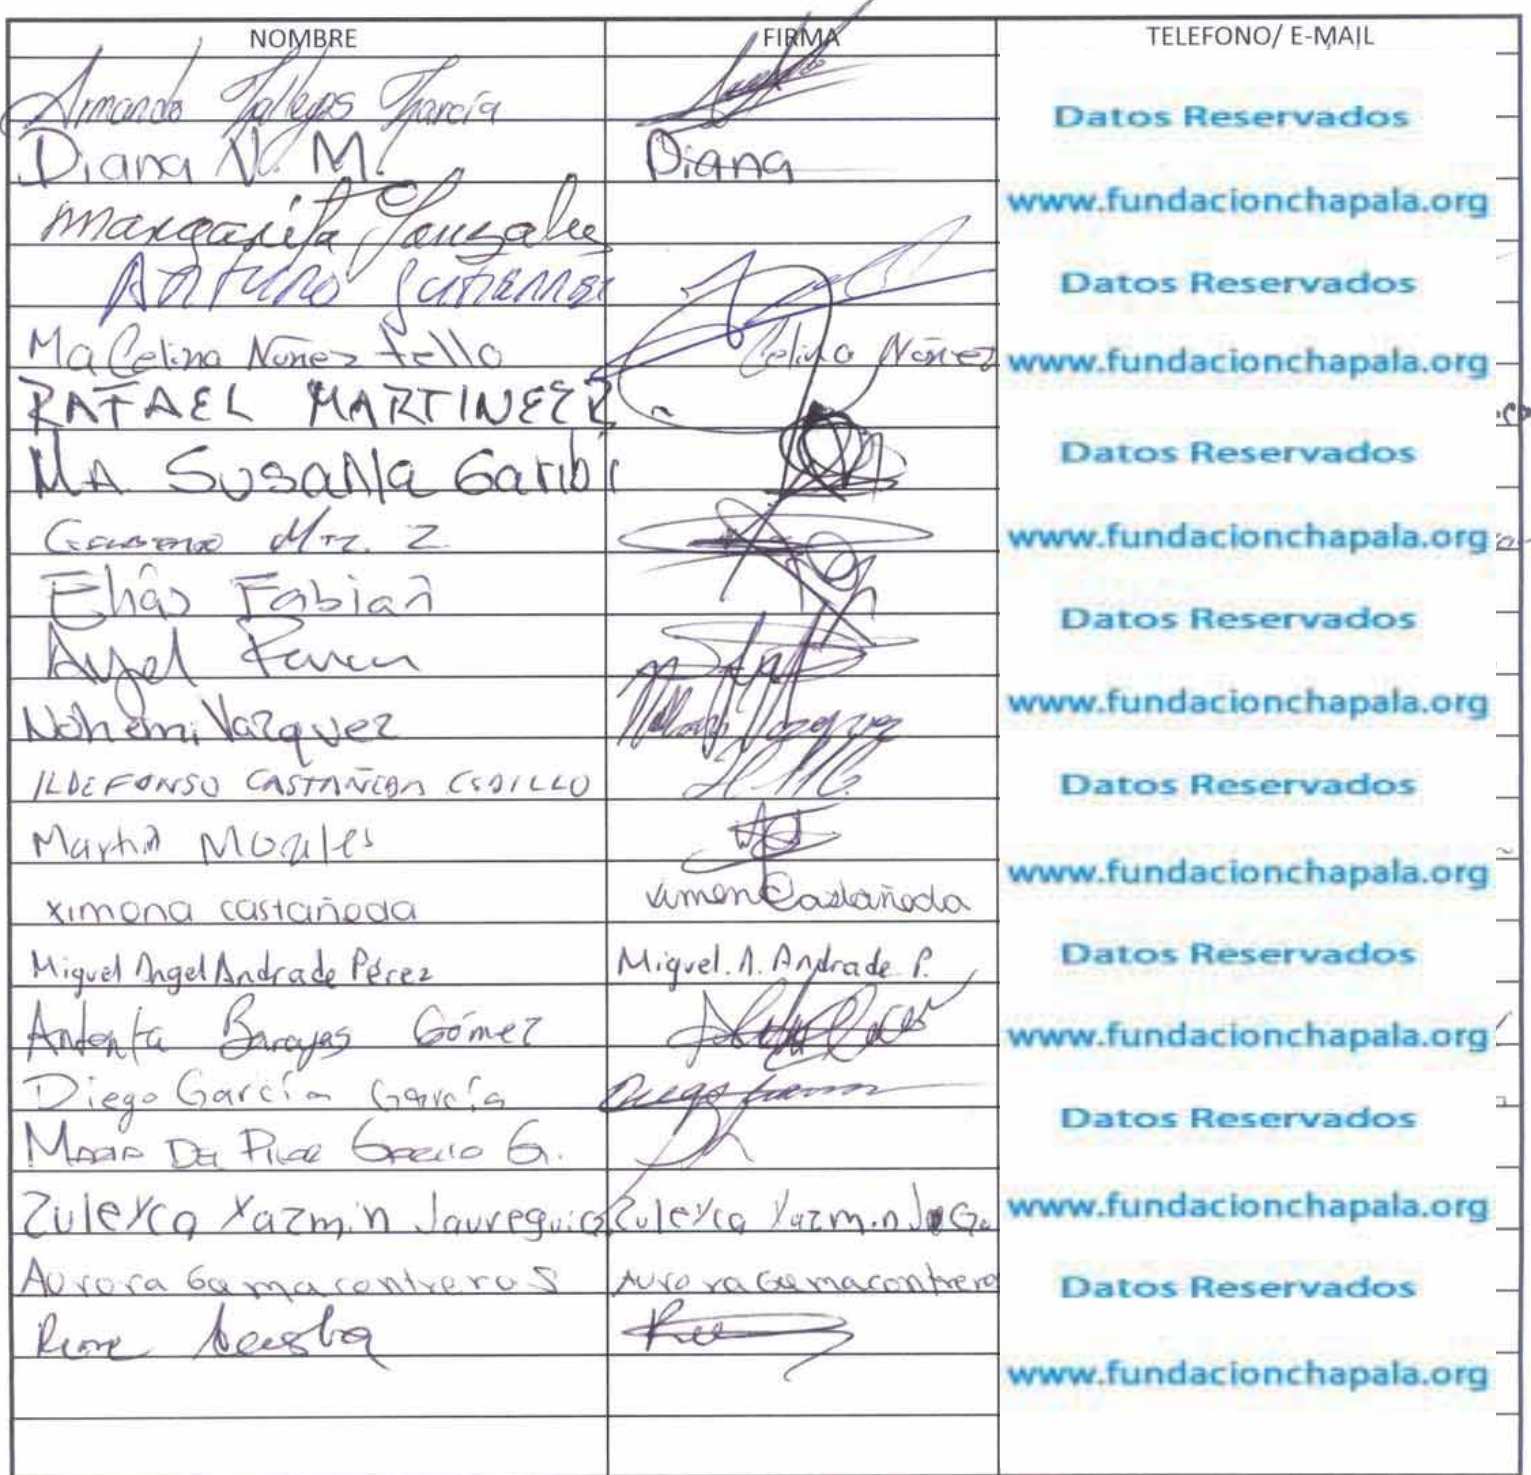 NOMBRE FIRMA TELEFONO/ E-MAIL
Armando Gallegos García
Datos Reservados
Diana V. M. Diana
www.fundacionchapala.org
Margarita Gonzalez
Arturo Gutierrez
Datos Reservados
Ma Celina Nuñez tello Celina Nuñez
www.fundacionchapala.org
RAFAEL MARTINEZ R
MA. SUSANA Garibi
Datos Reservados
Mtz. Z.
www.fundacionchapala.org
Elías Fabian
Datos Reservados
Angel
www.fundacionchapala.org
Nohemi Vazquez
ILDEFONSO CASTAÑEDA CEDILLO
Datos Reservados
Martin Morales
www.fundacionchapala.org
ximena castañeda Castañeda
Miguel Angel Andrade Pérez Miguel. A. Andrade P.
Datos Reservados
Barajas Gómez
www.fundacionchapala.org
Diego García García
Datos Reservados
Maria Del Pilar G.
Zuleyca Yazmin Jauregui Zuleyca Yazmin
www.fundacionchapala.org
Aurora Gama contreras Aurora Gama contrera
Datos Reservados
Rene Acosta
www.fundacionchapala.org